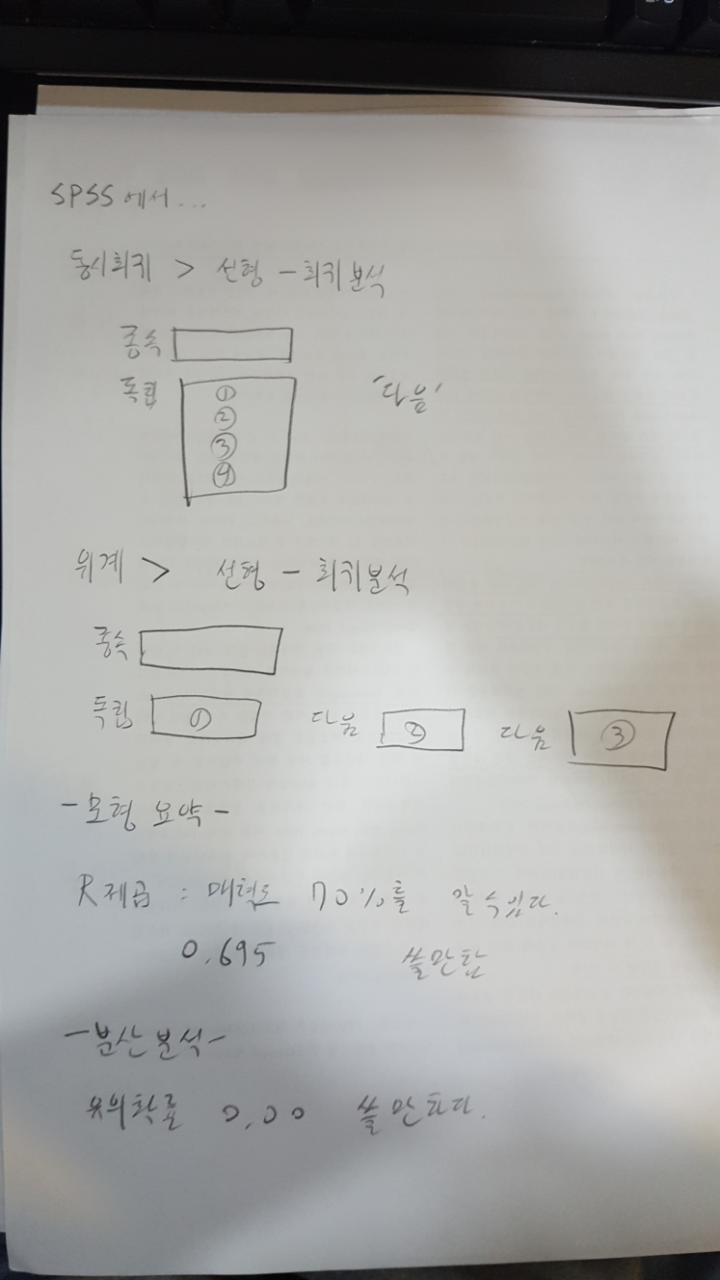 SPSS 에서...
동시회귀 > 선형 - 회귀분석
종속
독립 ① '다음'
②
③
④
위계 > 선형 - 회귀분석
종속
독립 ① 다음 ② 다음 ③
- 모형 요약 -
R제곱 : 매력도 70%를 알 수 있다.
0.695 쓸만함
- 분산분석 -
유의확률 0.00 쓸만하다.